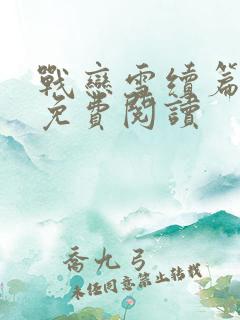 戰戀雪續篇
免費閱讀
喬九弓
未經同意禁止轉載